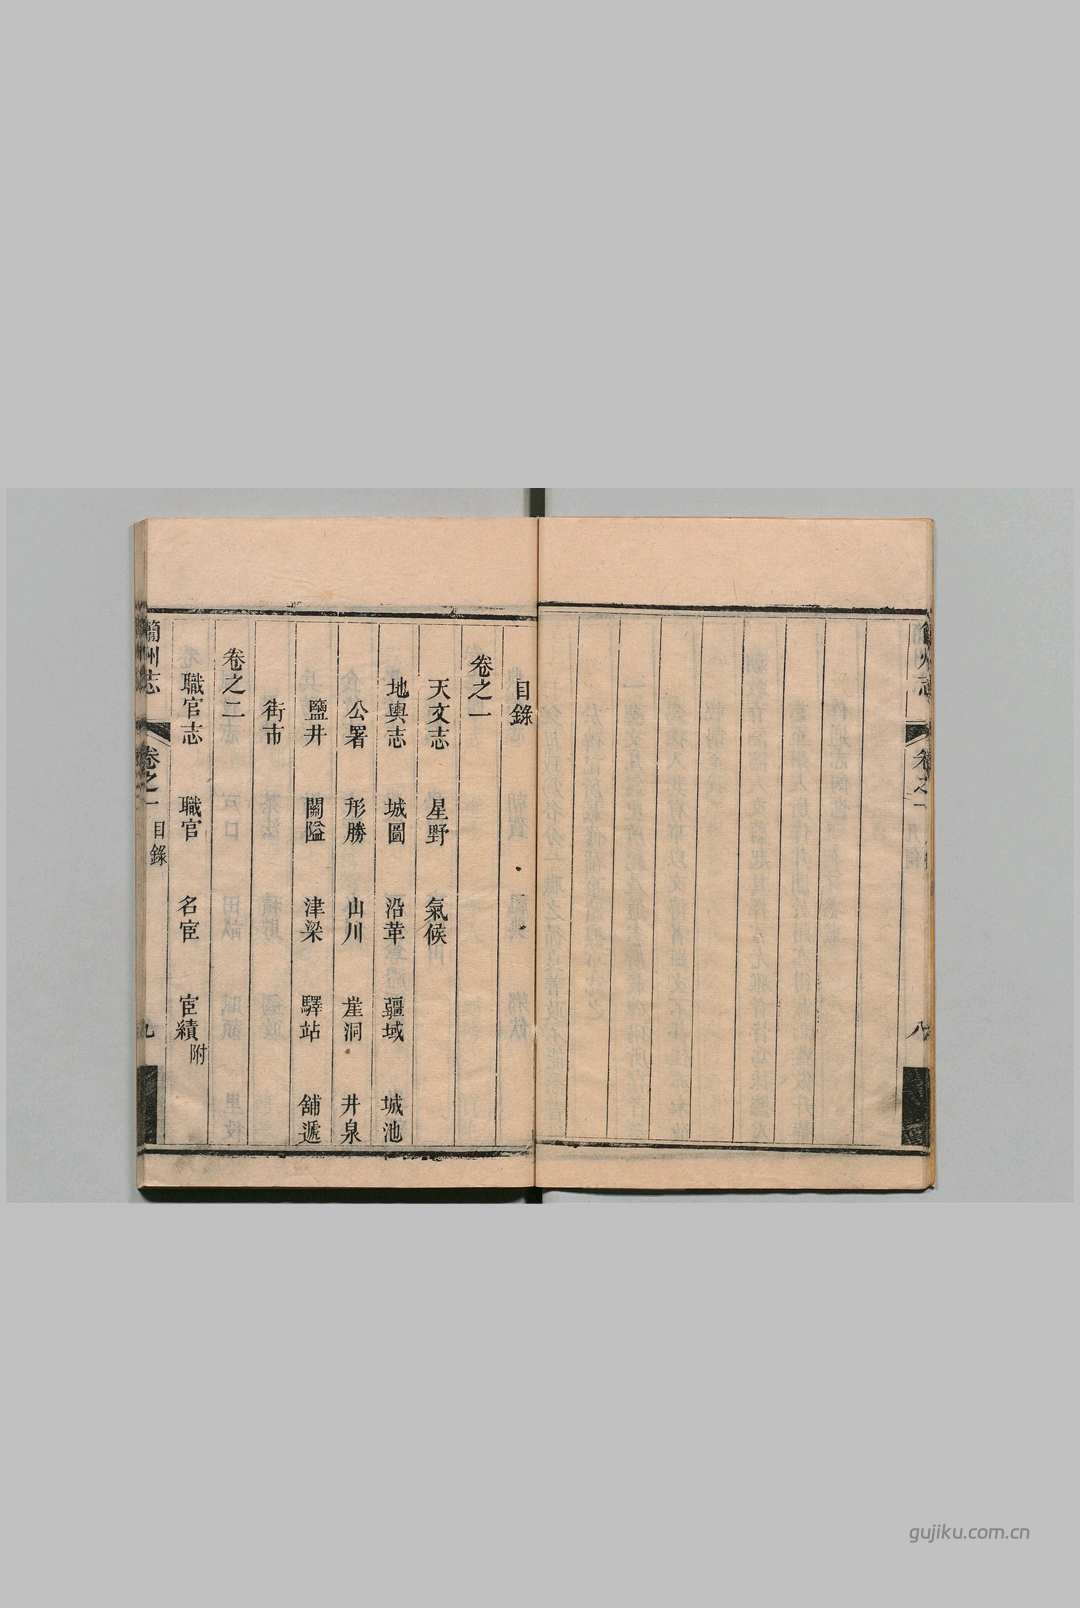 目錄
卷之一
天文志 星野 氣候
地輿志 城圖 沿革 疆域 城池
公署 形勝 山川 崖洞 井泉
鹽井 關隘 津梁 驛站 舖遞
街市
卷之二
職官志 職官 名宦 宦績附
蘭州志 卷之一 目錄 九
州志 卷之一 八
gujiku.com.cn